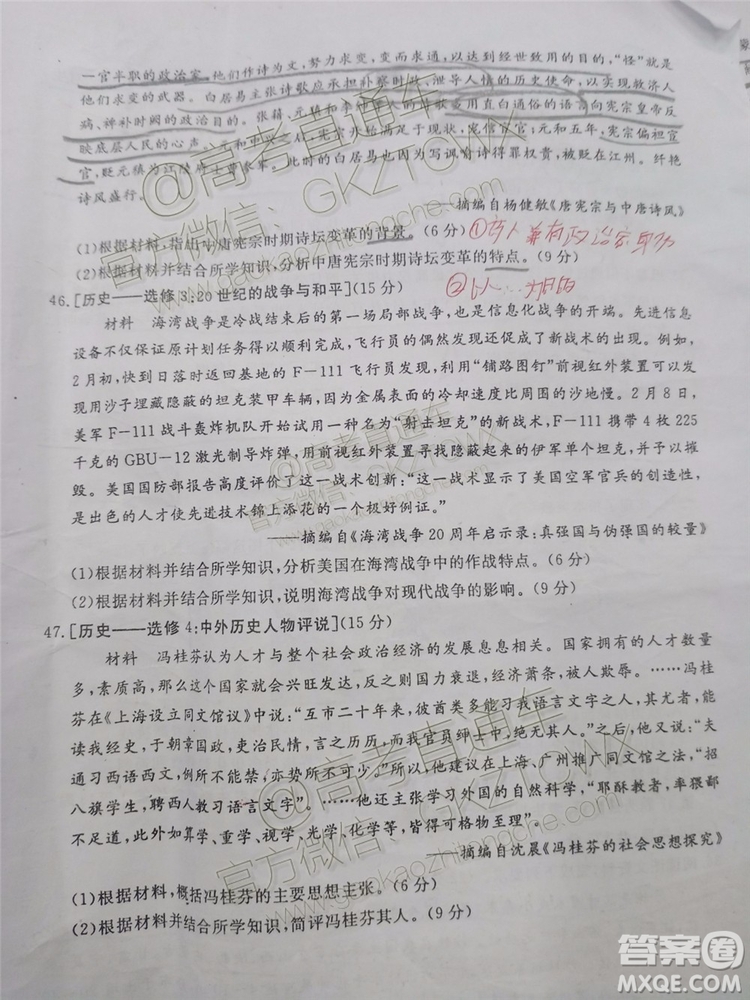 一官半职的政治家。他们作诗为文，努力求变，变而求通，以达到经世致用的目的，“怪”就是
他们求变的武器。白居易主张诗歌应承担补察时政、泄导人情的历史使命，以实现救济人
病、裨补时阙的政治目的。张籍、元稹和李绅
多用直白通俗的语言向宪宗皇帝反
映底层人民的心声。元和中兴
开始满足于现状，宠信宦官；元和五年，宪宗偏袒宦
官，贬元稹为江陵府士曹参军。此后的白居易也因为写讽喻诗得罪权贵，被贬在江州。纤艳
诗风盛行。
——摘编自杨健敏《唐宪宗与中唐诗风》
(1)根据材料，指出中唐宪宗时期诗坛变革的背景。(6分)
(2)根据材料并结合所学知识，分析中唐宪宗时期诗坛变革的特点。(9分)
46.[历史——选修3：20世纪的战争与和平](15分)
材料 海湾战争是冷战结束后的第一场局部战争，也是信息化战争的开端。先进的信息
设备不仅保证原计划任务得以顺利完成，飞行员的偶然发现还促成了新战术的出现。例如，
2月初，快到日落时返回基地的F—111飞行员发现，利用“铺路图钉”前视红外装置可以发
现用沙子埋藏隐蔽的坦克装甲车辆，因为金属表面的冷却速度比周围的沙地慢。2月8日，
美军F—111战斗轰炸机队开始试用一种名为“射击坦克”的新战术，F—111携带4枚225
千克的GBU—12激光制导炸弹，用前视红外装置寻找隐蔽起来的伊军单个坦克，效果惊人。
美国国防部报告高度评价了这一战术创新：“这一战术显示了美国空军官兵的创造性，
是出色的人才使先进技术锦上添花的一个极好例证。”
——摘编自《海湾战争20周年启示录：真强国与伪强国的较量》
(1)根据材料并结合所学知识，分析美国在海湾战争中的作战特点。(6分)
(2)根据材料并结合所学知识，说明海湾战争对现代战争的影响。(9分)
47.[历史——选修4：中外历史人物评说](15分)
材料 冯桂芬认为人才与整个社会政治经济的发展息息相关。如果一个国家人才众
多，素质高，那么这个国家就会兴旺发达，反之，则国力衰弱、经济萧条、被人欺辱。……冯桂
芬在《上海设立同文馆议》中说：“互市二十年来，彼酋类多能习我语言文字之人，其尤者，能
读我经史，于朝章国政、吏治民情，言之历历，而我官员绅士中，绝无其人。”“夫
通习西语西文，例所不能禁，亦势所不可少。”所以，他建议在上海、广州推广同文馆之法，“招
八旗学生，聘西人教习语言文字”。……他还主张学习外国的自然科学，“耶酥教者，率猥鄙
不足道，此外如算学、重学、视学、光学、化学等，皆得可格物至理”。
——摘编自沈晨《冯桂芬的社会思想探究》
(1)根据材料，概括冯桂芬的主要思想主张。(6分)
(2)根据材料并结合所学知识，简评冯桂芬其人。(9分)
@高考直通车
官方微信：GKZTCWX
www.gaokaozhitongche.com
答案圈
MXQE.COM